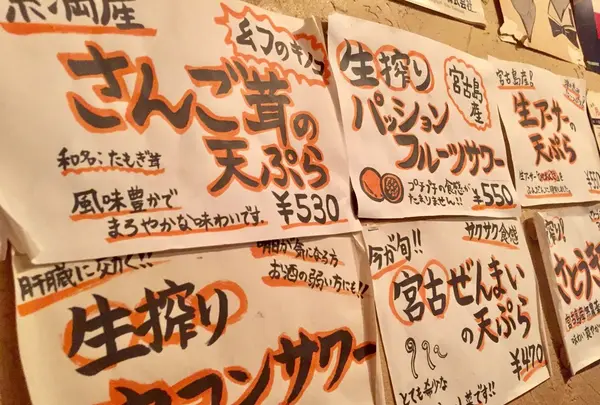 糸満産
幻のキノコ
さんご茸の
天ぷら
和名:たもぎ茸
風味豊かで
まろやかな味わいです。
¥530
生搾り
宮古島
産
パッション
フルーツサワー
プチプチの食感が
たまりません!!
¥550
宮古島産!
生アーサーの
天ぷら
肝臓に効く!!
明日が気になる方
お酒の弱い方にも!!
生搾り
ウコンサワー
今が旬!!
サクサク食感
宮古ぜんまい
の天ぷら
¥470
とても希少な
搾り
さとうき